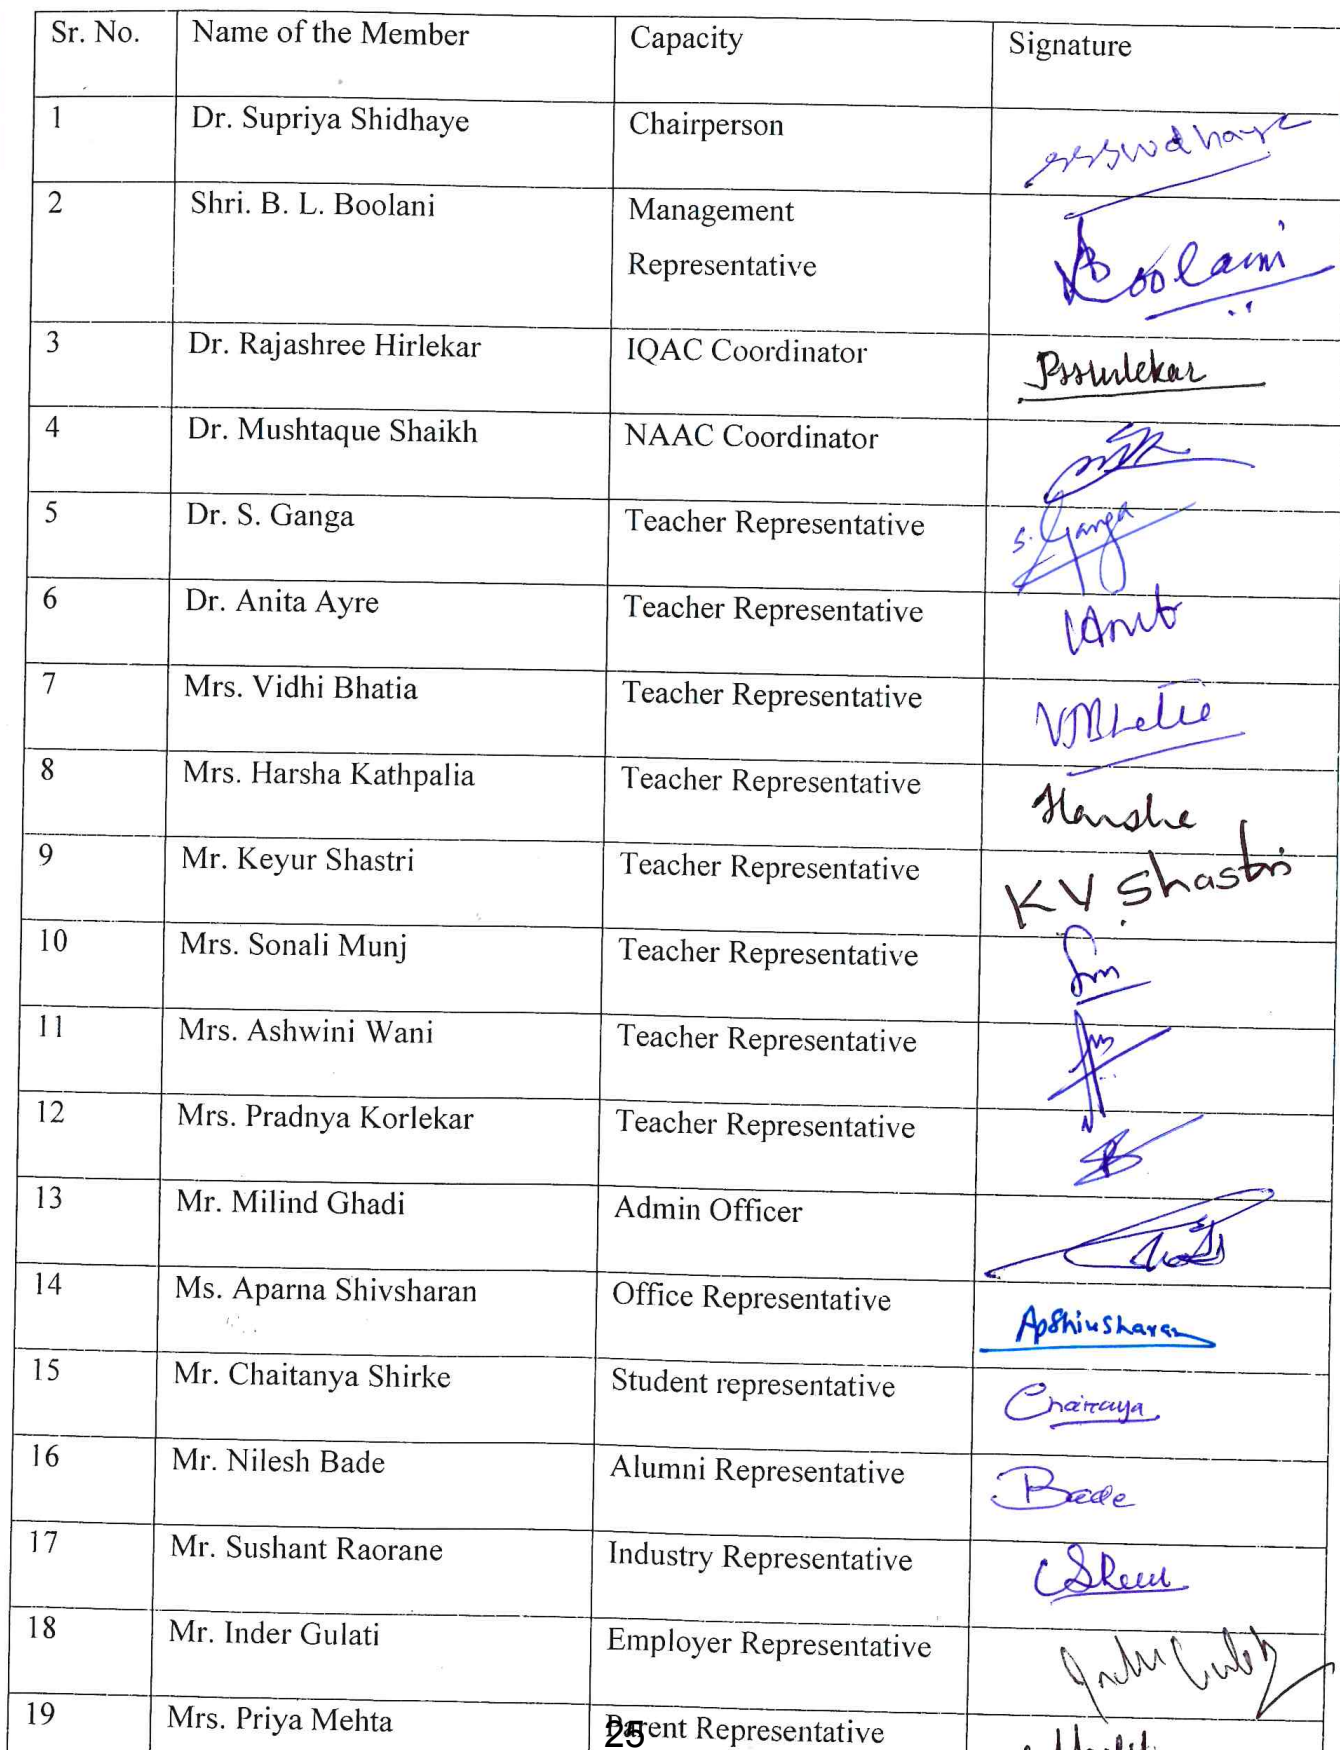 Sr. No. Name of the Member Capacity Signature
1 Dr. Supriya Shidhaye Chairperson
2 Shri. B. L. Boolani Management
Representative Boolani
3 Dr. Rajashree Hirlekar IQAC Coordinator
4 Dr. Mushtaque Shaikh NAAC Coordinator
5 Dr. S. Ganga Teacher Representative S. Ganga
6 Dr. Anita Ayre Teacher Representative
7 Mrs. Vidhi Bhatia Teacher Representative
8 Mrs. Harsha Kathpalia Teacher Representative Harsha
9 Mr. Keyur Shastri Teacher Representative KV Shastri
10 Mrs. Sonali Munj Teacher Representative Sm
11 Mrs. Ashwini Wani Teacher Representative
12 Mrs. Pradnya Korlekar Teacher Representative
13 Mr. Milind Ghadi Admin Officer
14 Ms. Aparna Shivsharan Office Representative ApShivsharan
15 Mr. Chaitanya Shirke Student representative
16 Mr. Nilesh Bade Alumni Representative Bade
17 Mr. Sushant Raorane Industry Representative
18 Mr. Inder Gulati Employer Representative
19 Mrs. Priya Mehta Parent Representative
25